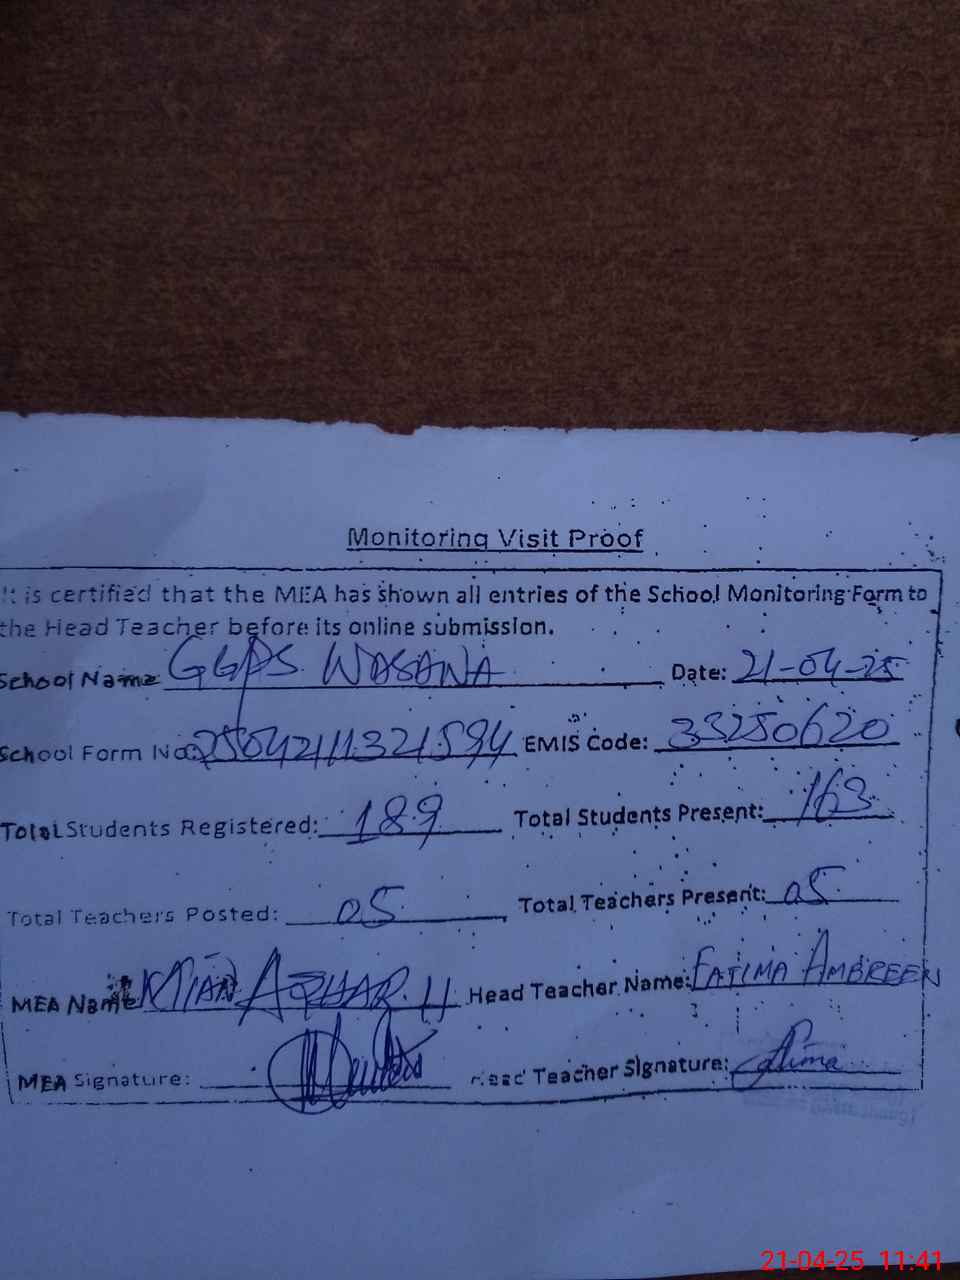 Monitoring Visit Proof
It is certified that the MEA has shown all entries of the School Monitoring Form to
the Head Teacher before its online submission.
School Name GGPS WASANA Date: 21-04-25
School Form No: 25042111321594 EMIS Code: 33250620
Total Students Registered: 189 Total Students Present: 163
Total Teachers Posted: 05 Total Teachers Present: 05
MEA Name MIAN AZHAR H Head Teacher Name: FATIMA AMBREEN
MEA Signature: Head Teacher Signature: Fatima
21-04-25 11:41